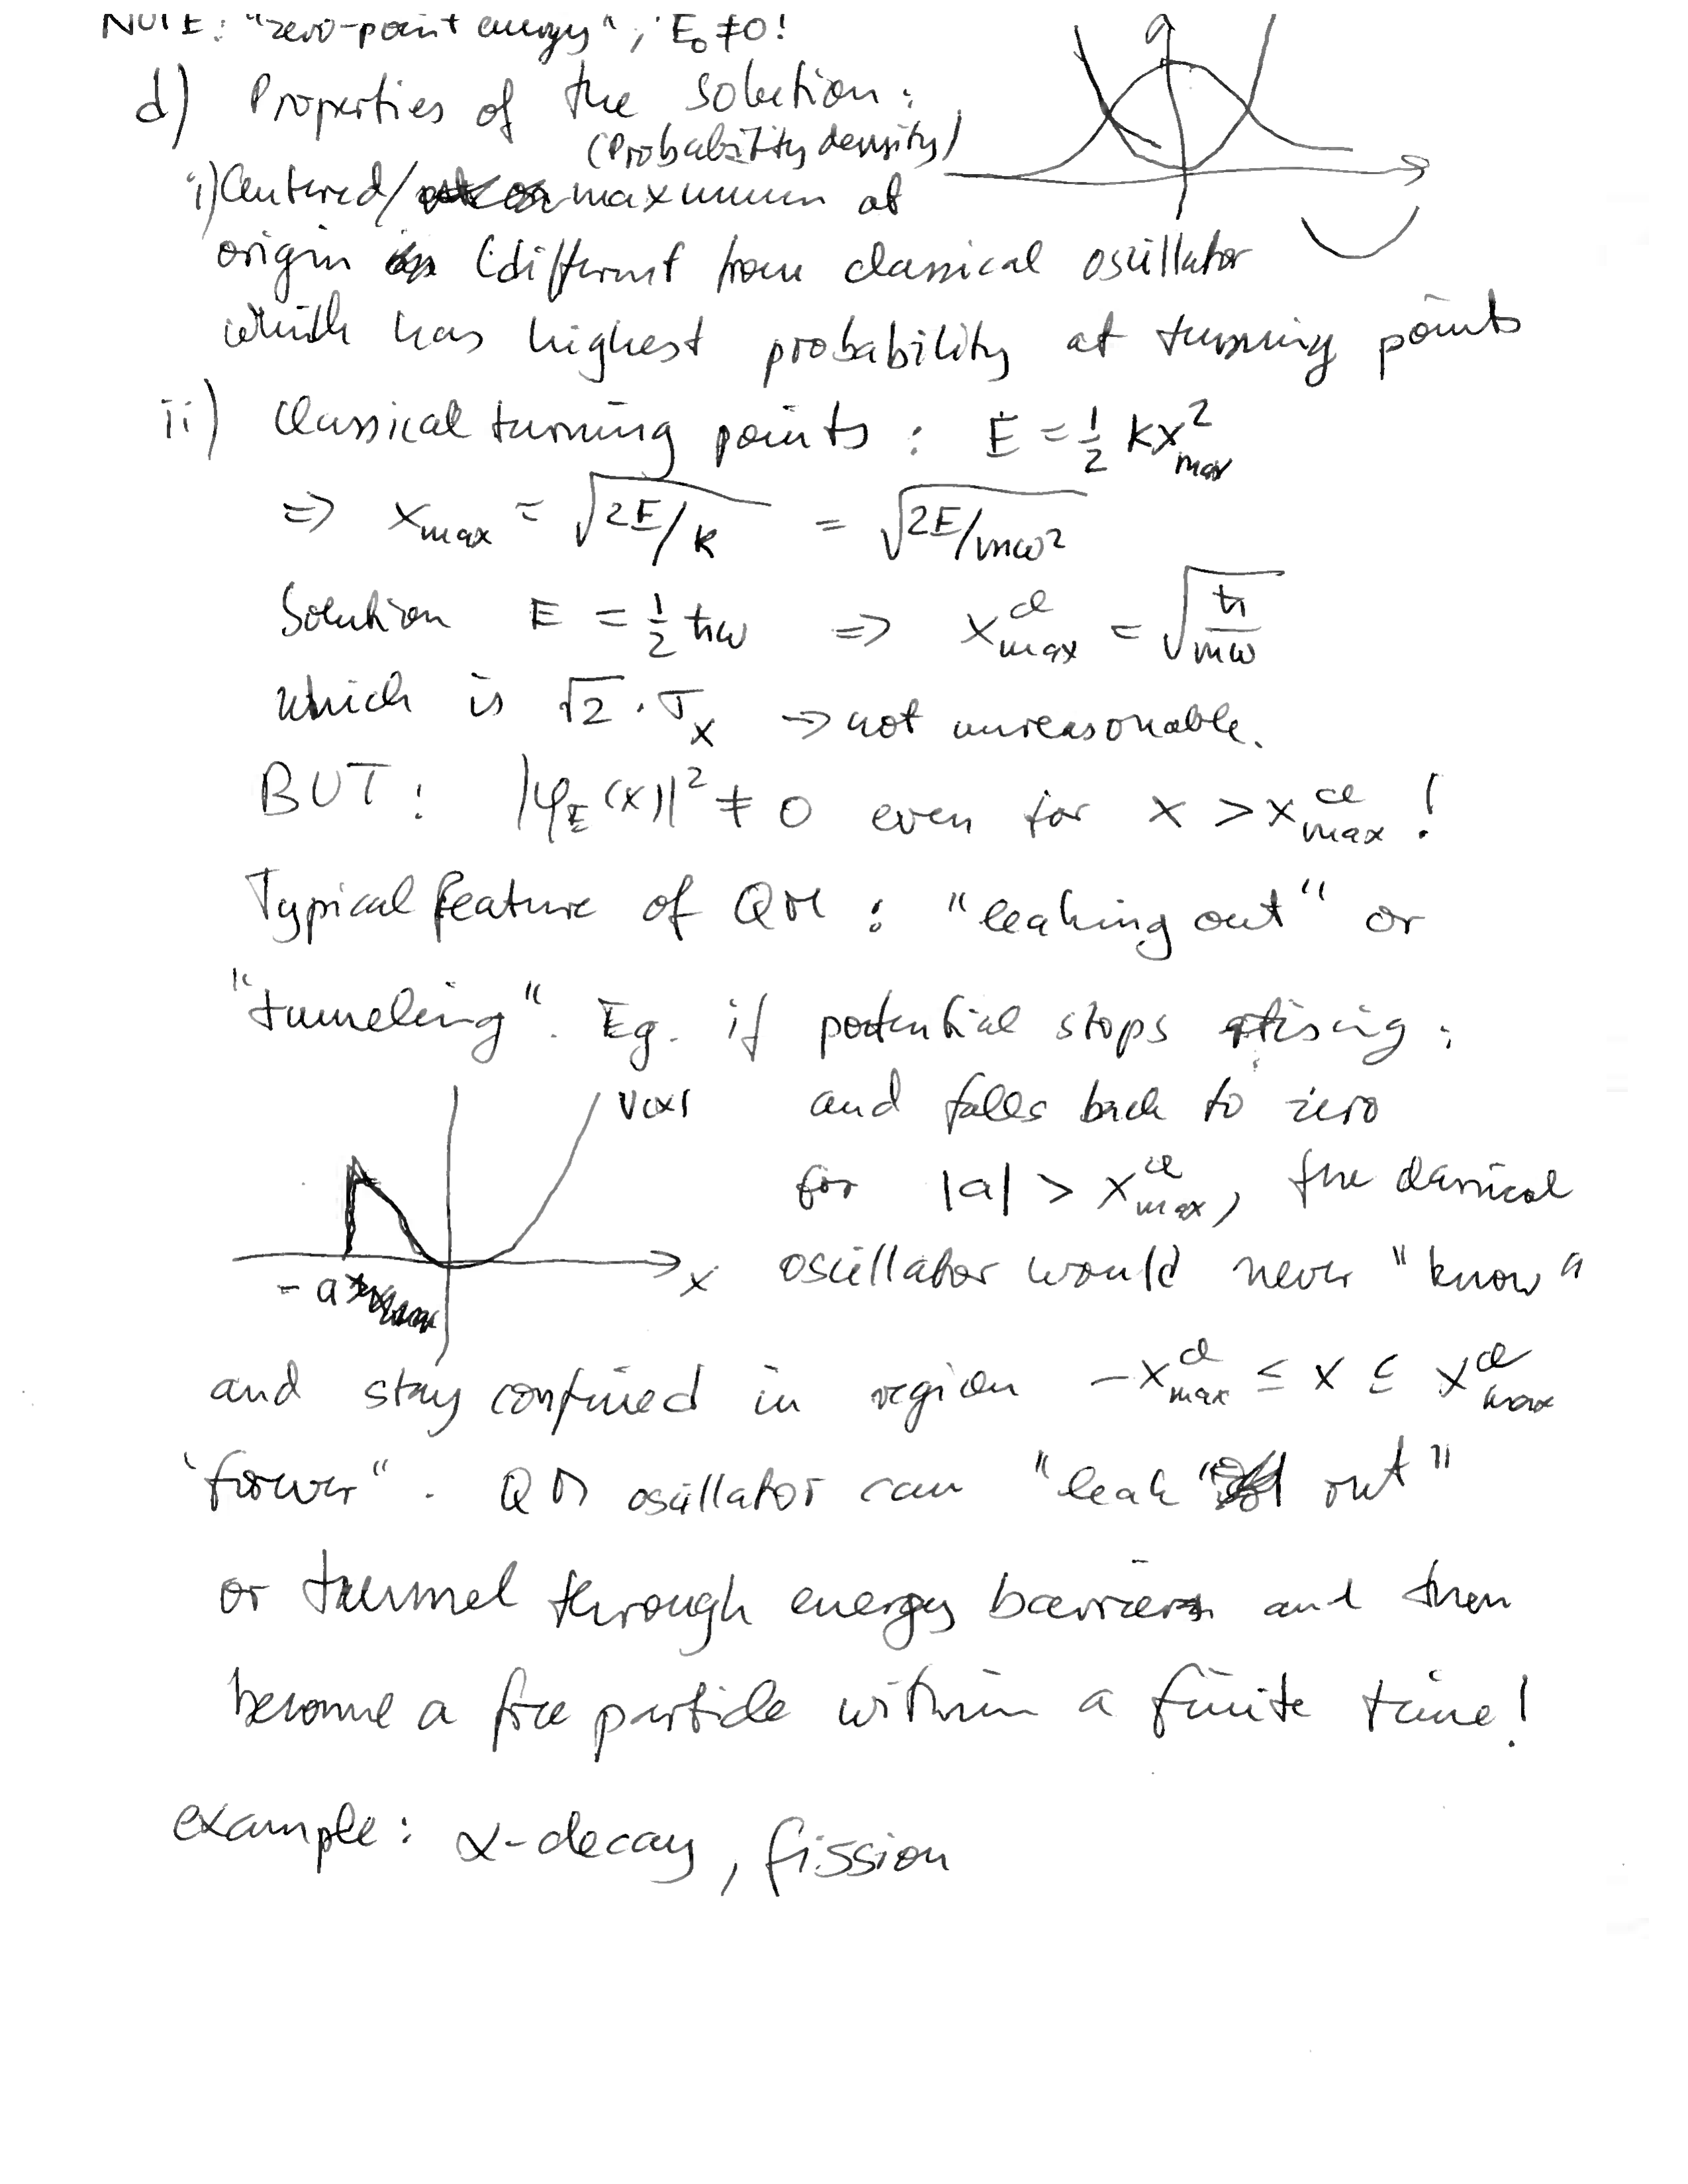 NOTE: "zero-point energy", E₀ ≠ 0!
d) Properties of the solution:
(Probability density)
i) Centered/ maximum at
origin (different from classical oscillator
which has highest probability at turning points
ii) Classical turning points : E = 1/2 kx²max
=> xmax = √(2E/k) = √(2E/mω²)
Solution E = 1/2 ħω => x^cl max = √(ħ/mω)
which is √2 · σx → not unreasonable.
BUT : |φE(x)|² ≠ 0 even for x > x^cl max !
Typical feature of QM : "leaking out" or
"tunneling". Eg. if potential stops rising ;
V(x)
and falls back to zero
for |a| > x^cl max, the classical
oscillator would never "know"
-a x
and stay confined in region -x^cl max ≤ x ≤ x^cl max
"forever". QM oscillator can "leak out"
or tunnel through energy barriers and then
become a free particle within a finite time!
example: α-decay, fission